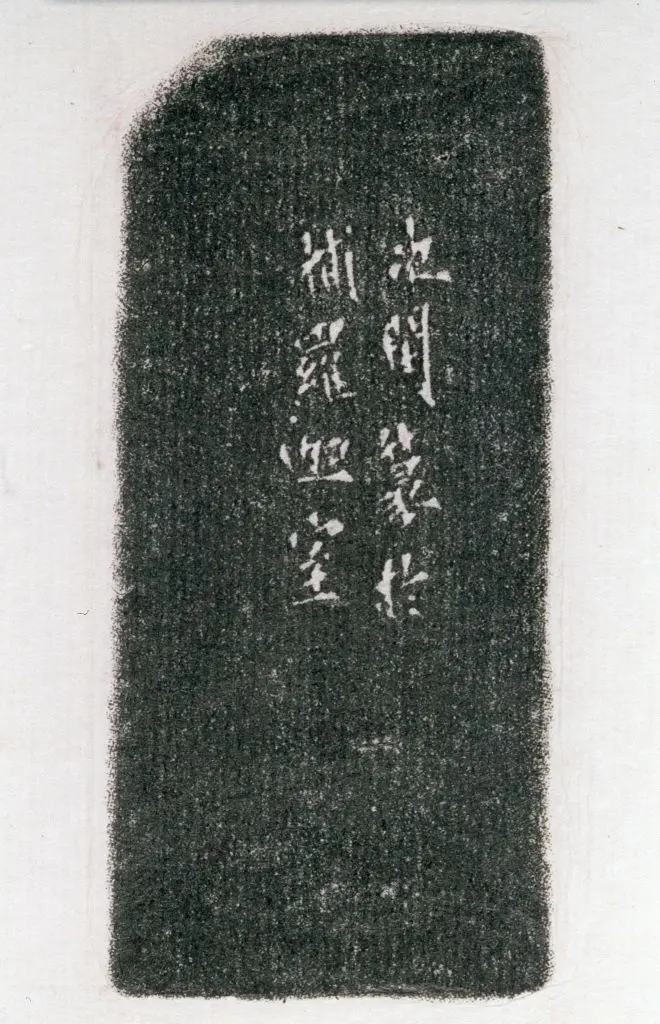 次閒篆於
補羅迦室